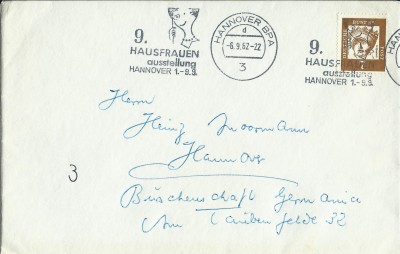 9.
HAUSFRAUEN
ausstellung
HANNOVER 1.-9.9.
HANNOVER BPA
d
-6.9.62-22
3
9.
HAUSFRAUEN
ausstellung
HANNOVER 1.-9.9.
Herrn
Heinz
Hannover
3
Burschenschaft Germania
Am Taubenfelde 32